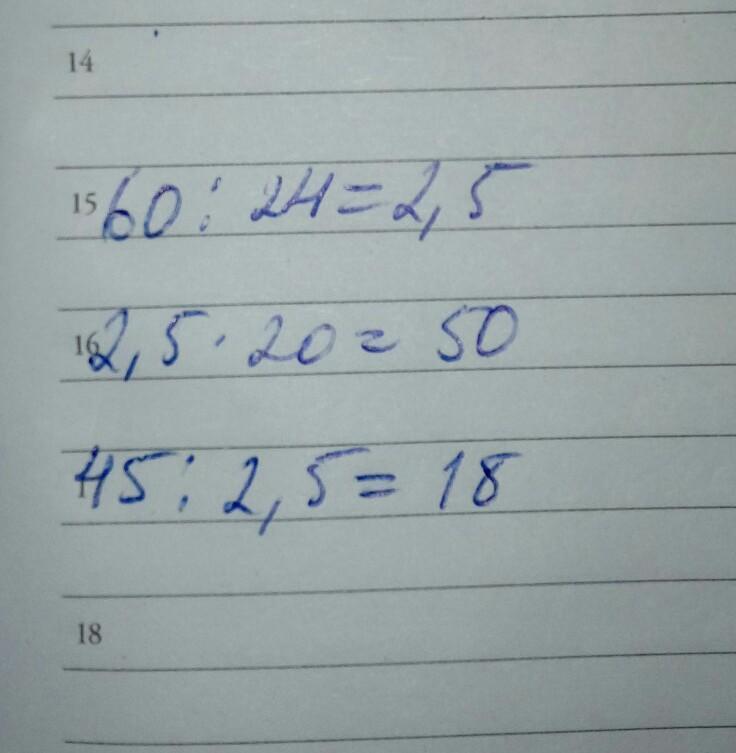 14
15 60 : 24 = 2,5
16 2,5 · 20 = 50
45 : 2,5 = 18
18